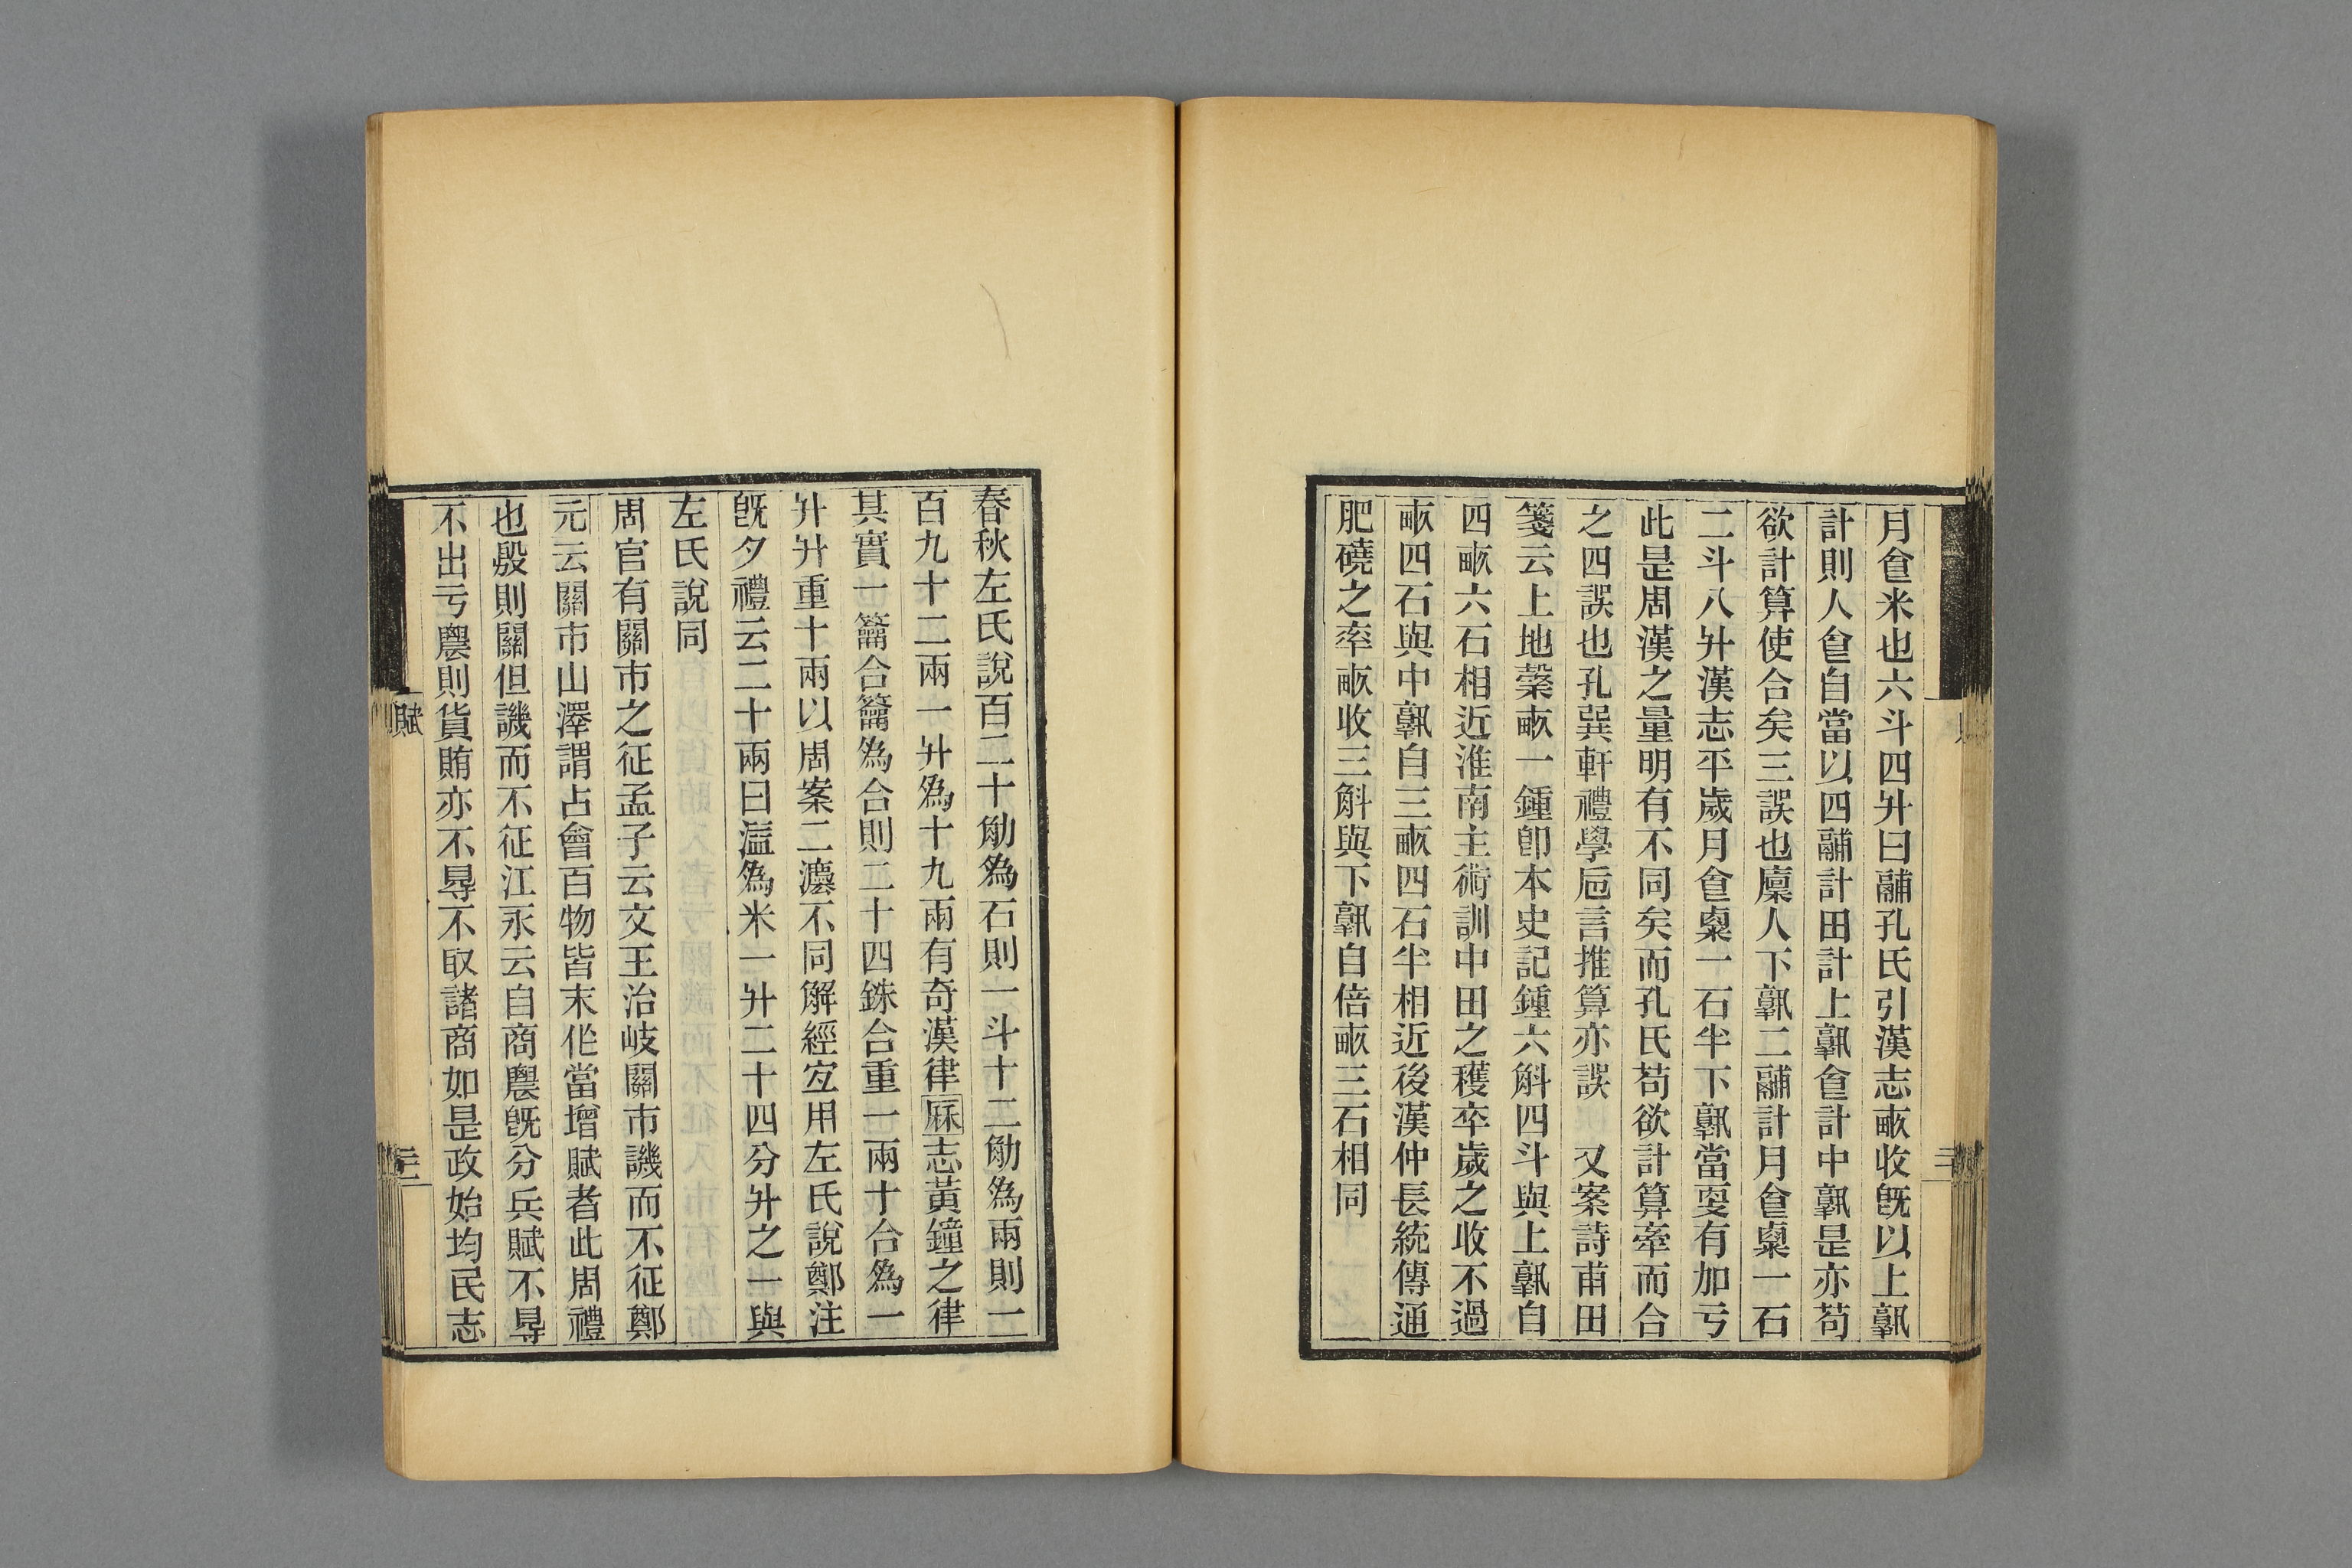 月食米也六斗四升曰鬴孔氏引漢志畝收既以上孰
計則人食自當以四鬴計田計上孰食計中孰是亦苟
欲計算使合矣三誤也廩人下孰二鬴計月食㮚一石
二斗八升漢志平歲月食㮚一石半下孰當耎有加亏
此是周漢之量明有不同矣而孔氏苟欲計算牽而合
之四誤也孔巽軒禮學卮言推算亦誤 又案詩甫田
箋云上地榖畝一鍾卽本史記鍾六斛四斗與上孰自
四畝六石相近淮南主術訓中田之穫卒歲之收不過
畝四石與中孰自三畝四石半相近後漢仲長統傳通
肥磽之率畝收三斛與下孰自倍畝三石相同
春秋左氏說百二十觔爲石則一斗十二觔爲兩則一
百九十二兩一升爲十九兩有奇漢律厤志黃鐘之律
其實一籥合籥爲合則二十四銖合重一兩十合爲一
升升重十兩以周案二灋不同解經宐用左氏說鄭注
既夕禮云二十兩曰溢爲米一升二十四分升之一與
左氏說同
周官有關市之征孟子云文王治岐關市譏而不征鄭
元云關市山澤謂占會百物皆末作當增賦者此周禮
也殷則關但譏而不征江永云自商農既分兵賦不㝵
不出亏農則貨賄亦不㝵不取諸商如是政始均民志
賦
三二